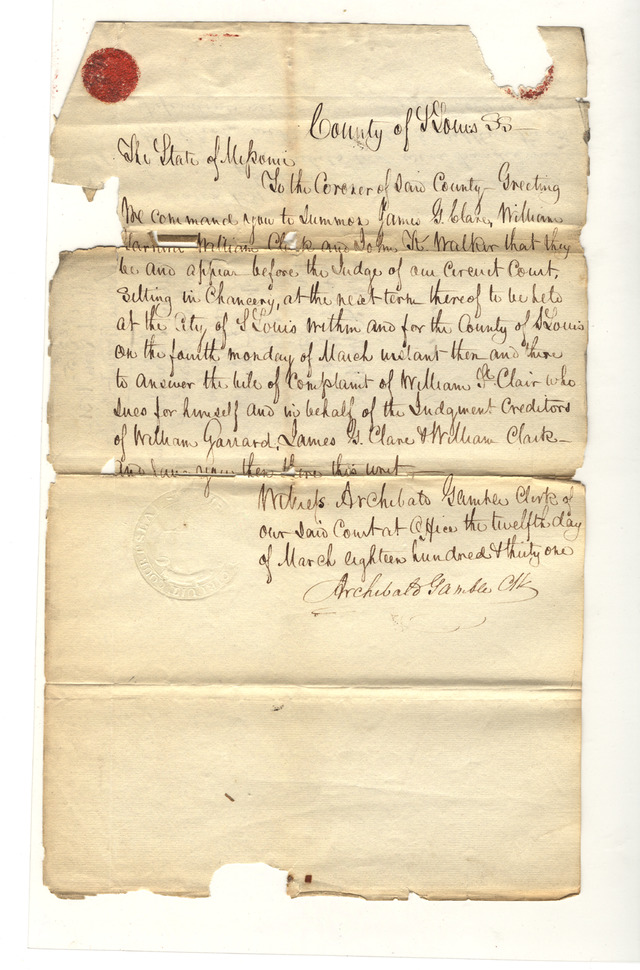 County of St Louis SS
The State of Missouri
To the Coroner of said County - Greeting
We command you to summon James G. Clare, William
William Clark and John K Walker that they
be and appear before the Judge of our Circuit Court,
sitting in Chancery, at the next term thereof to be held
at the City of St Louis within and for the County of St Louis
on the fourth monday of March instant then and there
to answer the bill of Complaint of William St. Clair who
sues for himself and in behalf of the Judgment Creditors
of William Garrard, James G. Clare & William Clark -
and then there this writ
Witness Archibald Gamble Clerk of
our said Court at office the twelfth day
of March eighteen hundred & thirty one
Archibald Gamble Clk